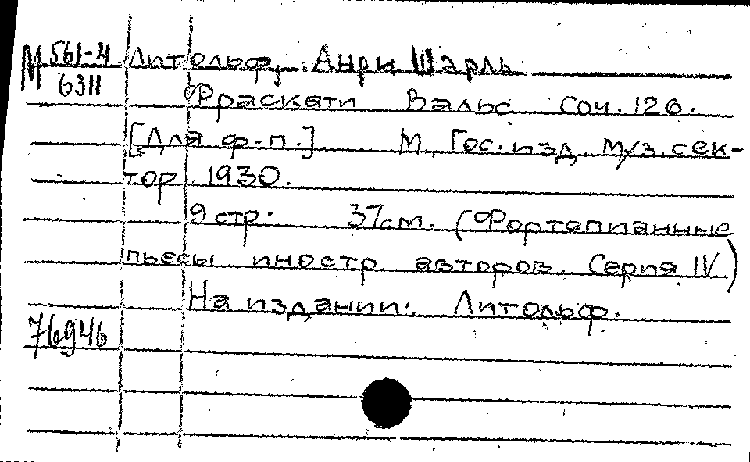 М 561-4 Литольф, Анри Шарль
6311 Фраскати Вальс Соч. 126.
[Для ф-п.] М, Гос. изд. муз. сек-
тор, 1930.
9 стр. 37 см. (Фортепианные
пьесы иностр. авторов. Серия IV)
На издании: Литольф.
76946